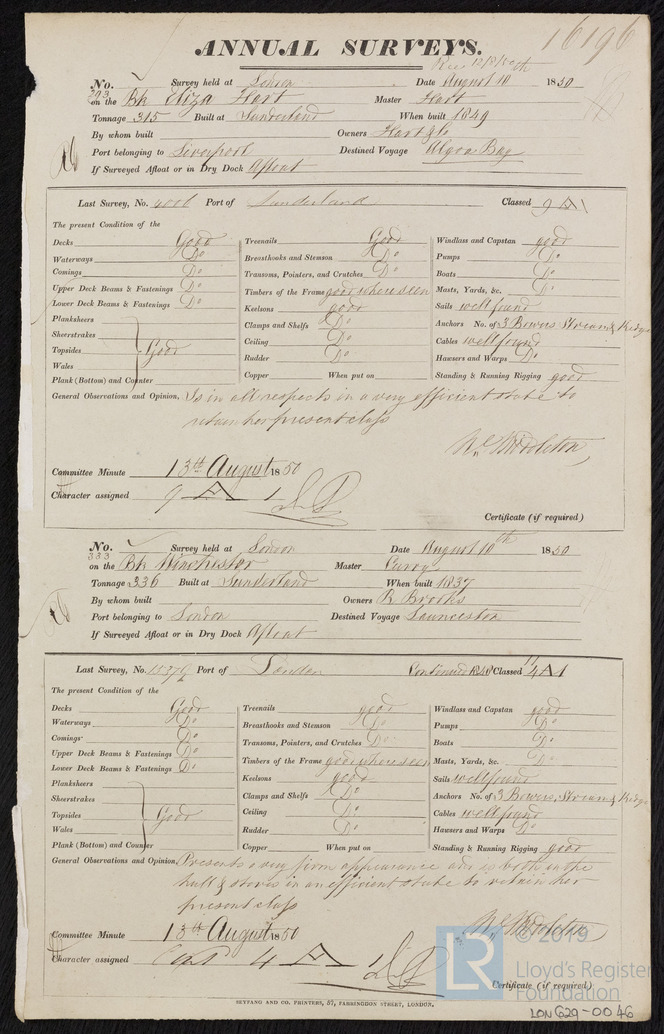 16196
ANNUAL SURVEYS.
No. 293 Survey held at London Date August 10 1850
on the Bk Eliza Hart Master Hart
Tonnage 315 Built at Sunderland When built 1849
By whom built Owners Hart & Co
Port belonging to Liverpool Destined Voyage Algoa Bay
If Surveyed Afloat or in Dry Dock Afloat
Last Survey, No. 4006 Port of Sunderland Classed 9 A 1
The present Condition of the
Decks Good
Waterways Do
Comings Do
Upper Deck Beams & Fastenings Do
Lower Deck Beams & Fastenings Do
Planksheers
Sheerstrakes
Topsides Good
Wales
Plank (Bottom) and Counter
Treenails Good
Breasthooks and Stemson Do
Transoms, Pointers, and Crutches Do
Timbers of the Frame good where seen
Keelsons good
Clamps and Shelfs Do
Ceiling Do
Rudder Do
Copper When put on
Windlass and Capstan good
Pumps Do
Boats Do
Masts, Yards, &c. Do
Sails well found
Anchors No. of 3 Bowers, Stream & Kedge
Cables well found
Hawsers and Warps Do
Standing & Running Rigging good
General Observations and Opinion, Is in all respects in a very efficient state to
retain her present class
Wm Middleton
Committee Minute 13th August 1850
Character assigned 9 A 1
Certificate (if required)
No. 333 Survey held at London Date August 10th 1850
on the Bk Winchester Master Curry
Tonnage 336 Built at Sunderland When built 1837
By whom built Owners R Brooks
Port belonging to London Destined Voyage Launceston
If Surveyed Afloat or in Dry Dock Afloat
Last Survey, No. Port of London Continued Classed 4 A 1
The present Condition of the
Decks Good
Waterways Do
Comings Do
Upper Deck Beams & Fastenings Do
Lower Deck Beams & Fastenings Do
Planksheers
Sheerstrakes
Topsides Good
Wales
Plank (Bottom) and Counter
Treenails good
Breasthooks and Stemson Do
Transoms, Pointers, and Crutches Do
Timbers of the Frame good where seen
Keelsons good
Clamps and Shelfs Do
Ceiling Do
Rudder Do
Copper When put on
Windlass and Capstan good
Pumps Do
Boats Do
Masts, Yards, &c. Do
Sails well found
Anchors No. of 3 Bowers, Stream & Kedge
Cables well found
Hawsers and Warps Do
Standing & Running Rigging good
General Observations and Opinion, Presents a very firm appearance and is both in the
hull & stores in an efficient state to retain her
present class
Wm Middleton
Committee Minute 13th August 1850
Character assigned 4 A 1
Certificate (if required)
SEYFANG AND CO. PRINTERS, 57, FARRINGDON STREET, LONDON.
LR © 2019
Lloyd's Register
Foundation
LON 629-0046